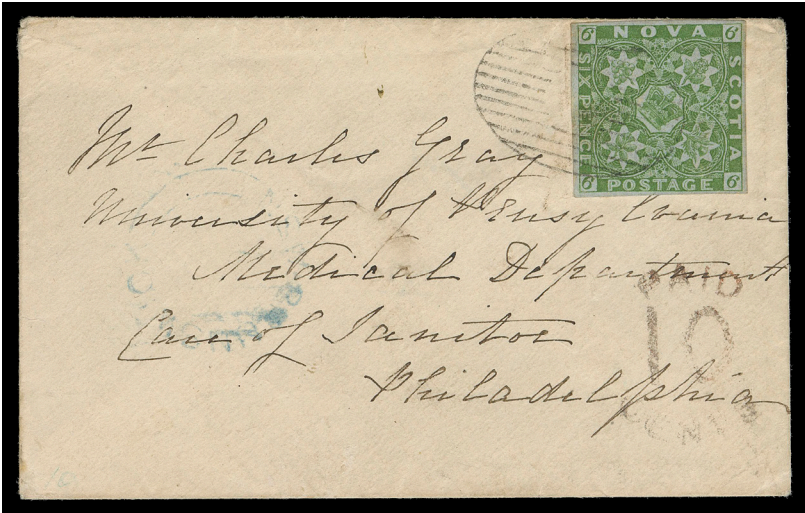 6 NOVA 6
SIX PENCE
SCOTIA
6 POSTAGE 6
Mr. Charles Gray
University of Pensylvania
Medical Department
Care of Janitor
Philadelphia
PAID
10
CENTS